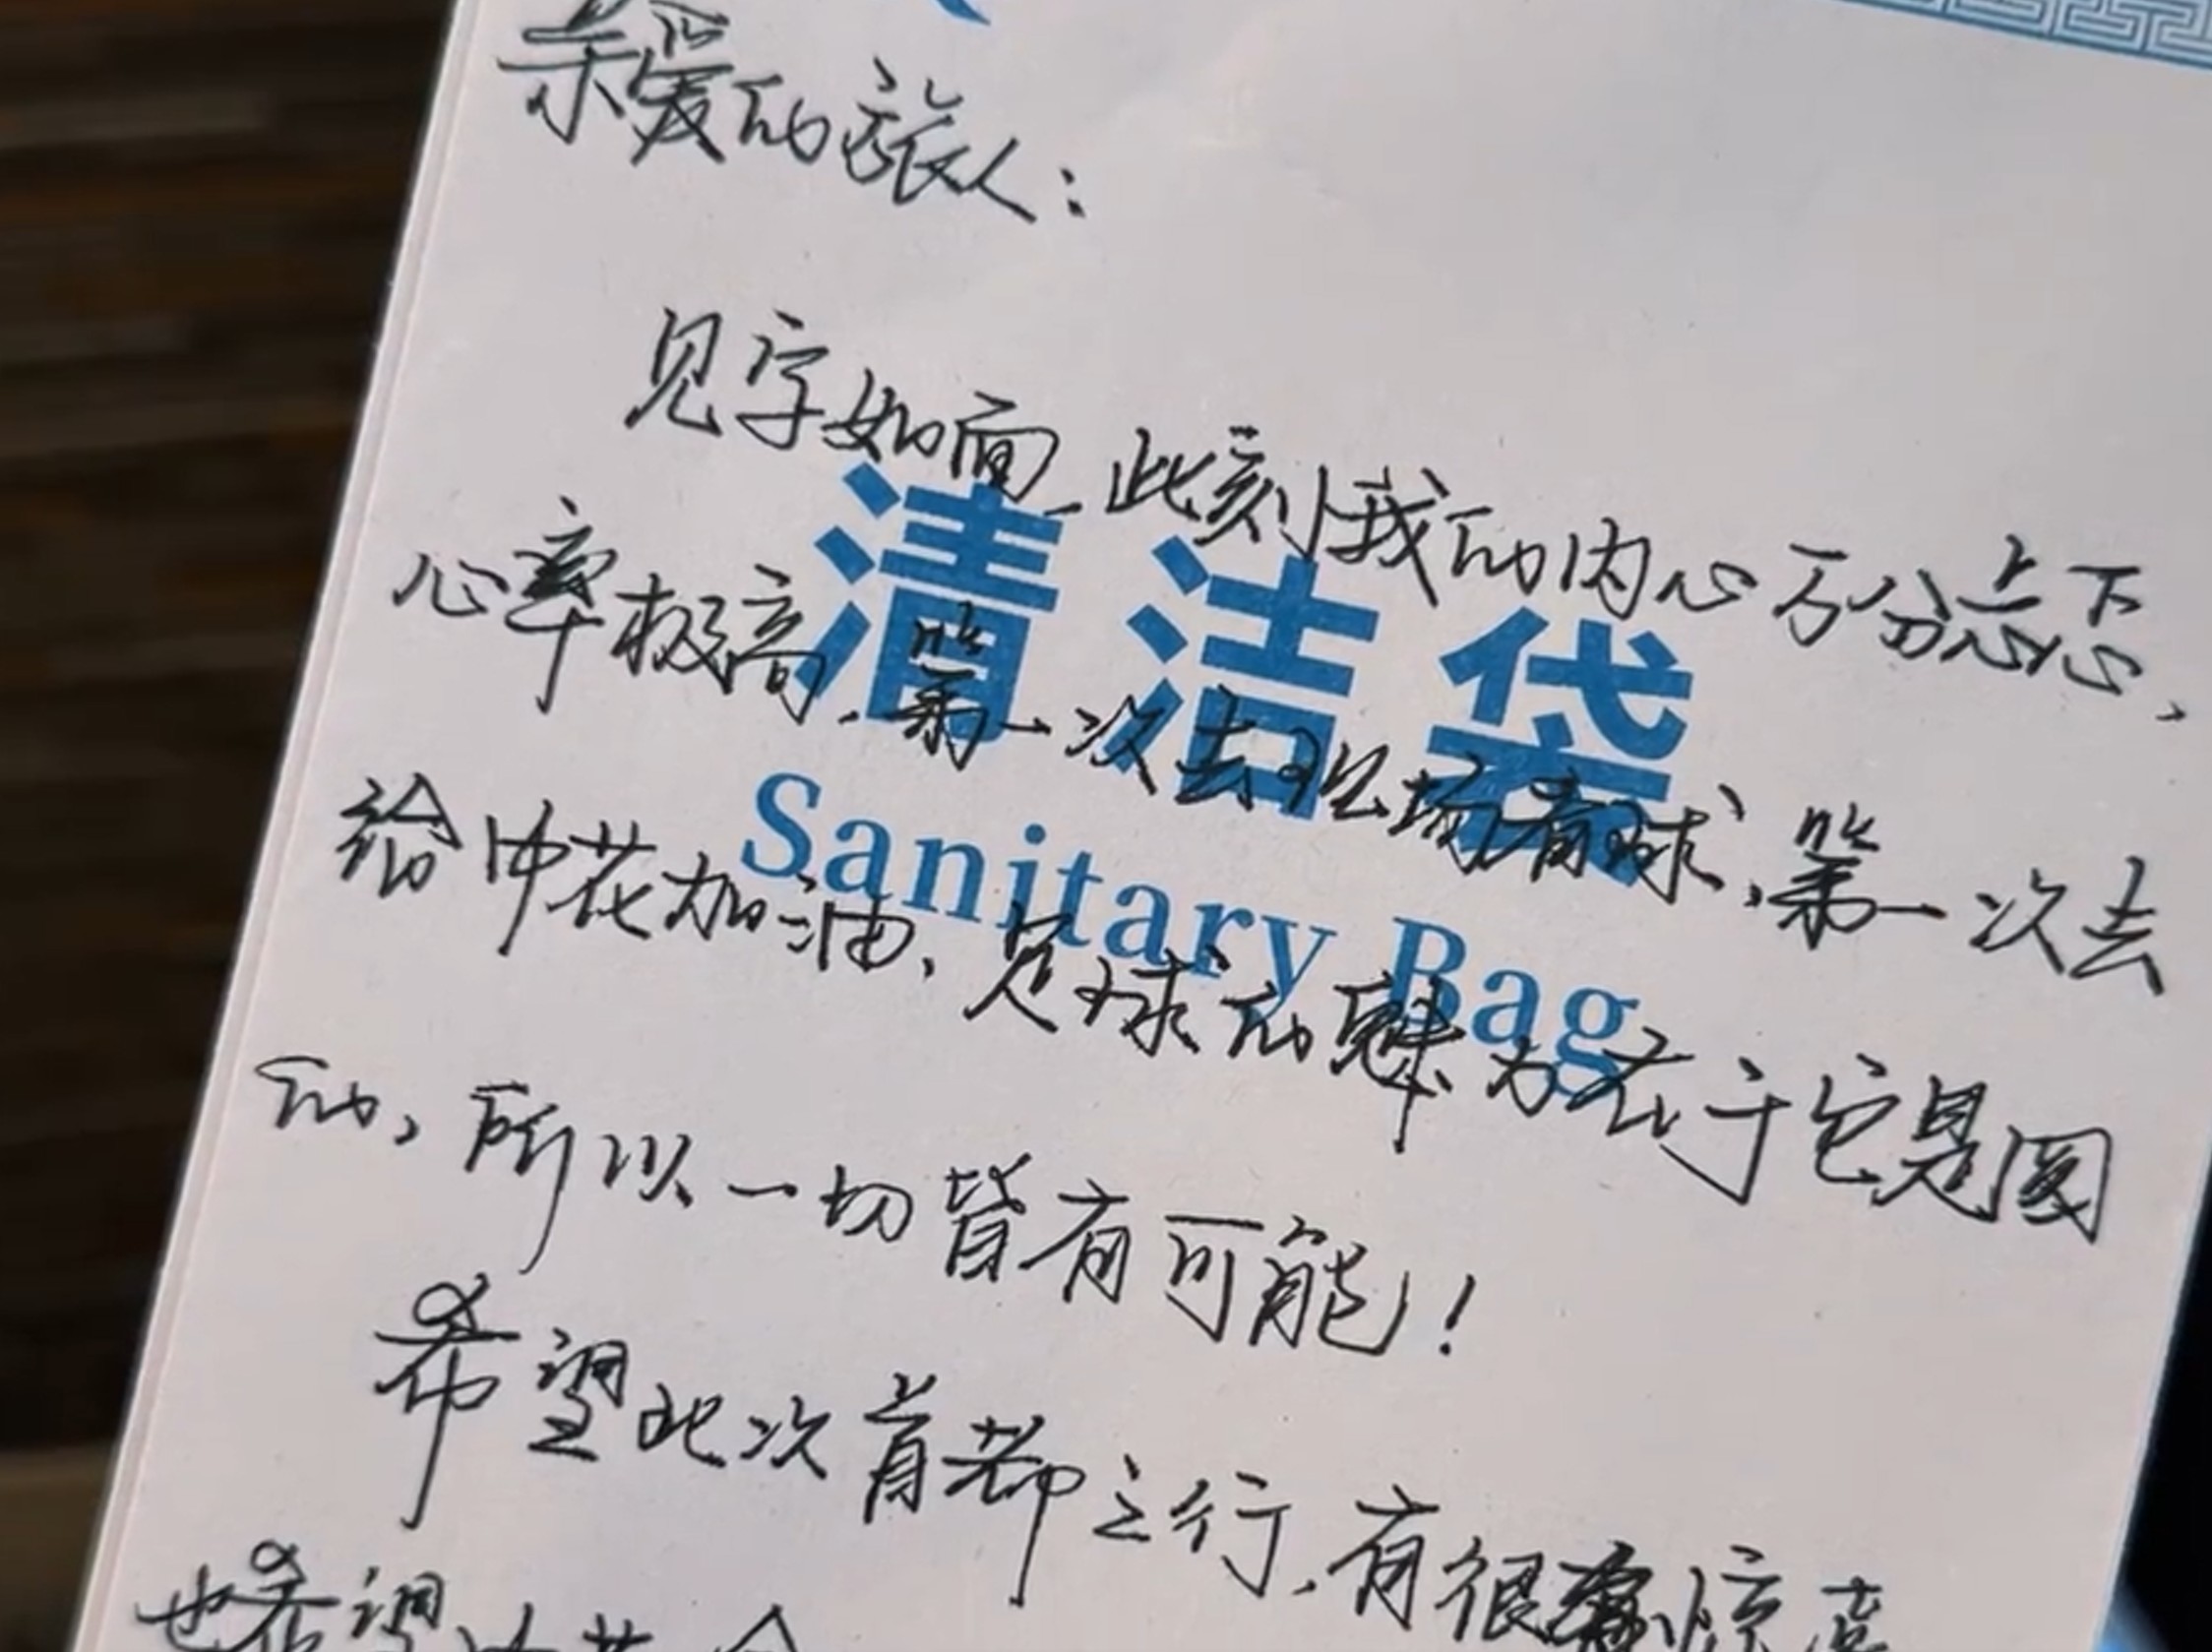 亲爱的旅人：
见字如面，此刻我的内心万分忐忑，
清洁袋
心率极高，第一次去现场看球，第一次去
Sanitary Bag
给申花加油，足球的魅力在于它是圆
的，所以一切皆有可能！
希望此次首都之行，有很多惊喜
也希望申花